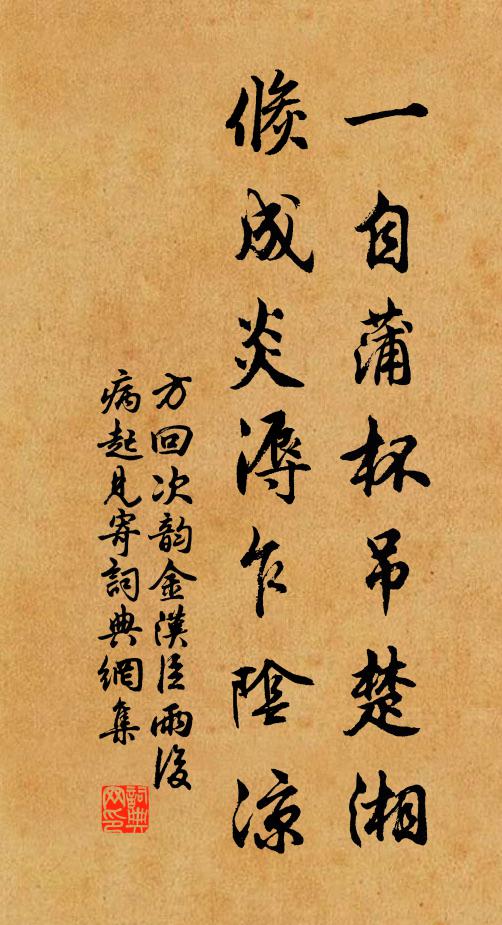 一自蒲杯吊楚湘
倐成炎溽乍陰涼
方回次韵金漢臣雨後
病起見寄詞典網集
詞典网印